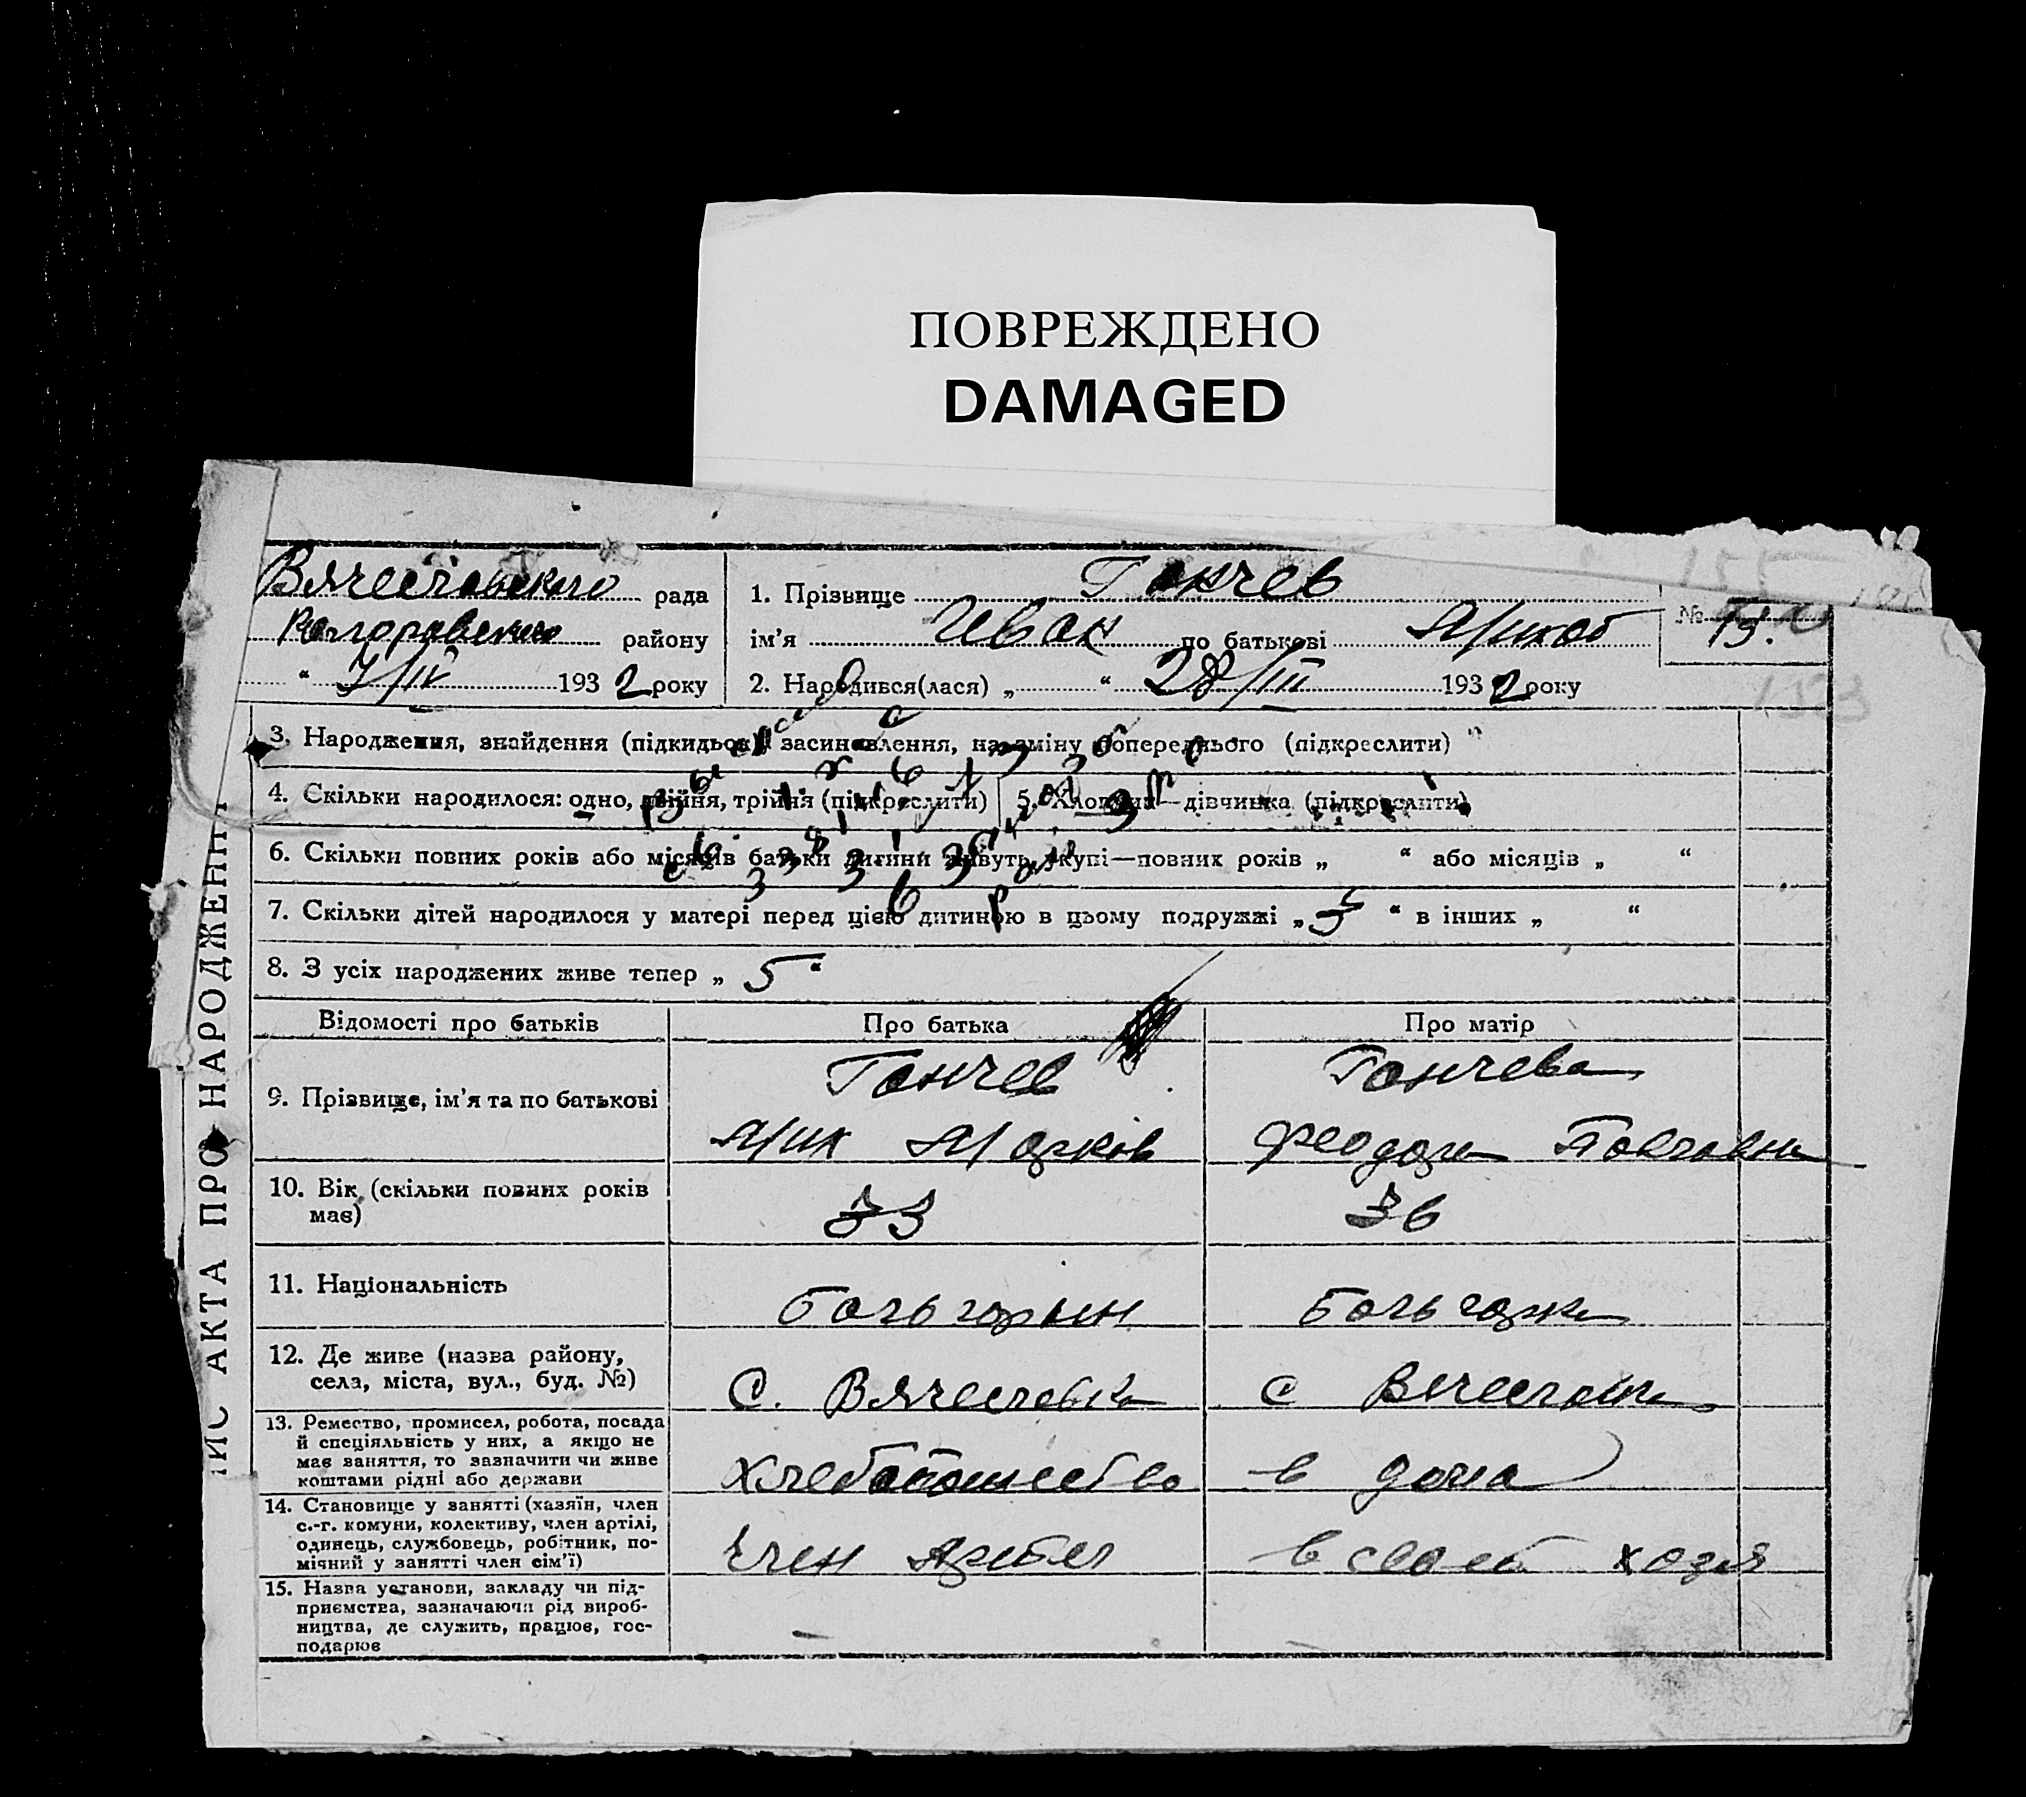 ПОВРЕЖДЕНО
DAMAGED
рада
району
" 7/IV 1932 року
1. Прізвище Ганчев
ім'я Иван по батькові
2. Народився(лася) „ " 28/III 1932 року
№ 15.
153
3. Народження, знайдення (підкидьок), засиновлення, на зміну попереднього (підкреслити)
4. Скільки народилося: одно, двійня, трійня (підкреслити)
5. Хлопчик—дівчинка (підкреслити)
6. Скільки повних років або місяців батьки дитини живуть укупі—повних років „ " або місяців „ "
7. Скільки дітей народилося у матері перед цією дитиною в цьому подружжі „ 5 " в інших „ "
8. З усіх народжених живе тепер „ 5 "
Відомості про батьків
Про батька
Про матір
9. Прізвище, ім'я та по батькові
Ганчев
Мих Марков
Ганчева
Феодора
10. Вік (скільки повних років
має)
33
36
11. Національність
Бальгарин
Бальгарка
12. Де живе (назва району,
села, міста, вул., буд. №)
С. Вячеславка
с Вячеславка
13. Ремество, промисел, робота, посада
й спеціяльність у них, а якщо не
має заняття, то зазначити чи живе
коштами рідні або держави
Хлебопашество
в дома
14. Становище у занятті (хазяїн, член
с.-г. комуни, колективу, член артілі,
одинець, службовець, робітник, по-
мічний у занятті член сім'ї)
Член Артели
в своей хозя
15. Назва установи, закладу чи під-
приємства, зазначаючи рід вироб-
ництва, де служить, працює, гос-
подарює
ИС АКТА ПРО НАРОДЖЕННЯ